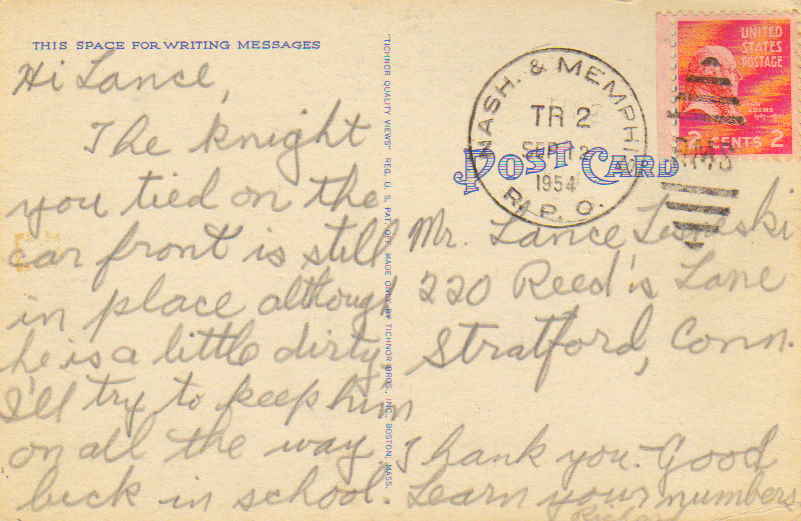 THIS SPACE FOR WRITING MESSAGES
Hi Lance,
The knight
you tied on the
car front is still
in place although
he is a little dirty.
I'll try to keep him
on all the way.
luck in school.
"TICHNOR QUALITY VIEWS" REG. U. S. PAT. OFF. MADE ONLY BY TICHNOR BROS., INC., BOSTON, MASS.
NASH. & MEMPHIS
TR 2
SEP 12
1954
R. P. O.
UNITED
STATES
POSTAGE
2 CENTS 2
POST CARD
Mr. Lance
220 Reed's Lane
Stratford, Conn.
Thank you. Good
Learn your numbers